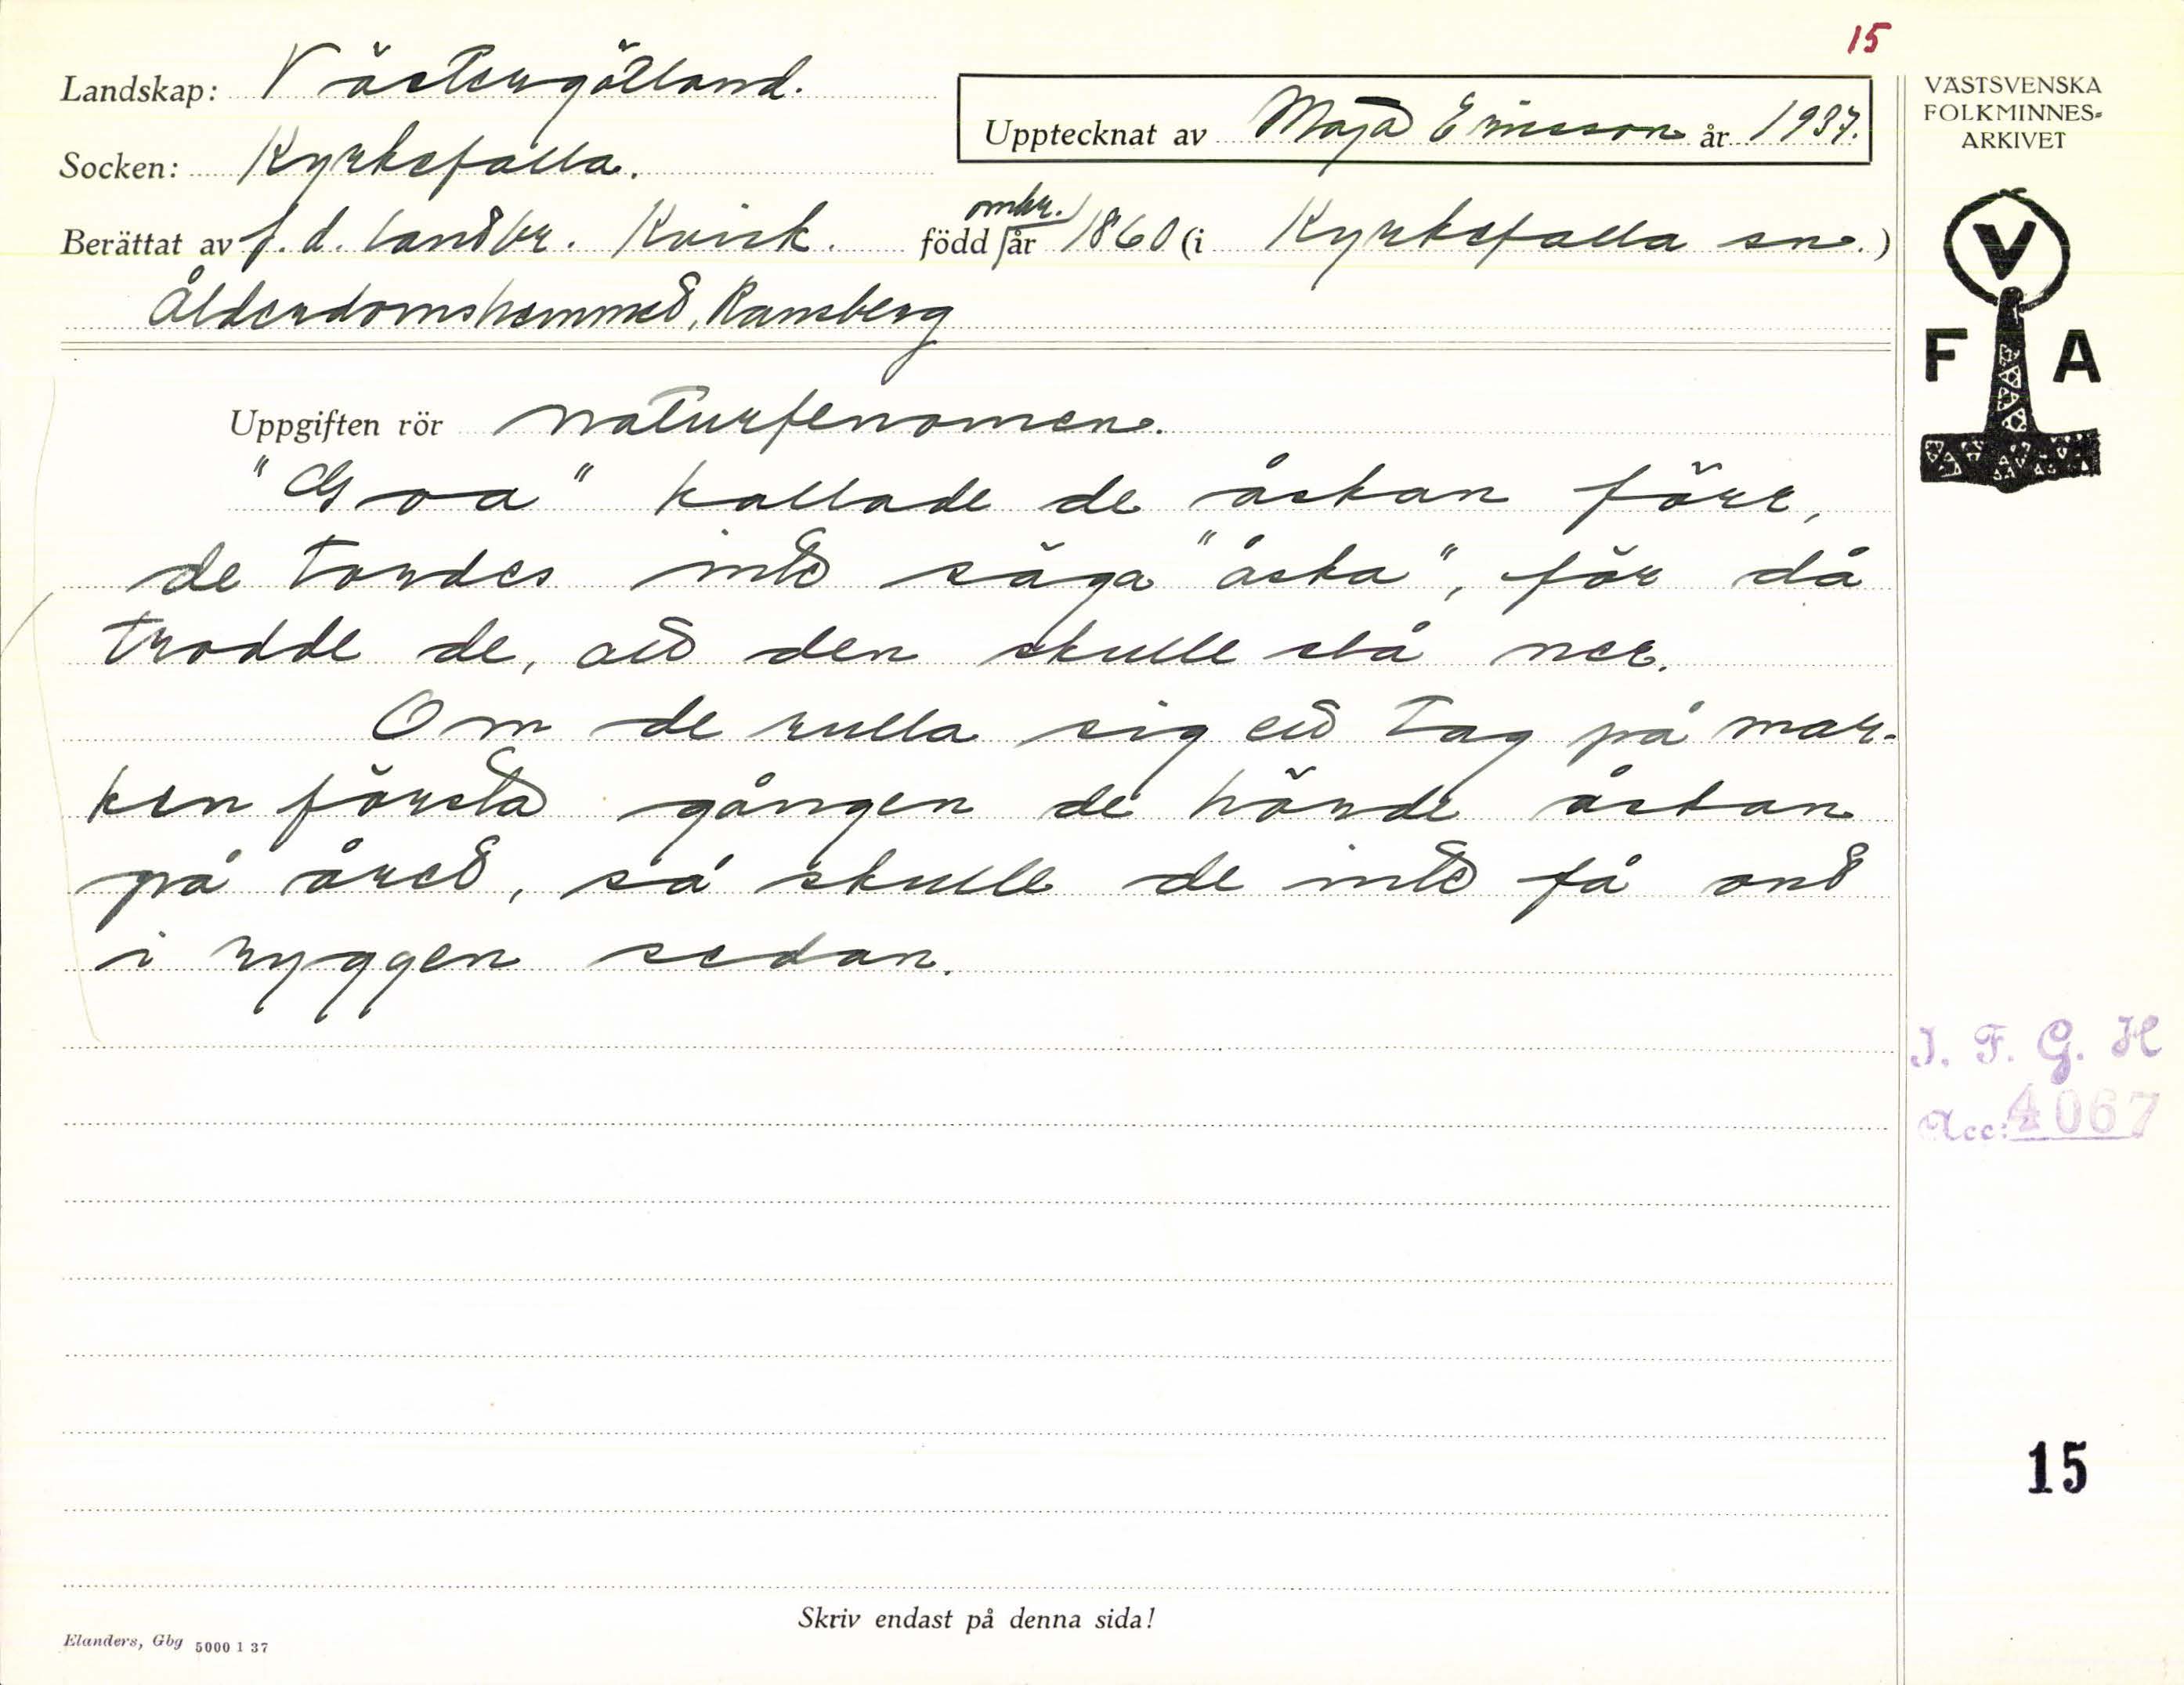 15
Landskap: Västergötland.
Socken: Kyrkefalla.
Upptecknat av Maja Ericsson år 1937.
Berättat av f. d. lantbr. Kvick. född omkr. år 1860 (i Kyrkefalla sn.)
Ålderdomshemmet, Ransberg
VÄSTSVENSKA
FOLKMINNES-
ARKIVET
V
F A
Uppgiften rör naturfenomen.
"Goa" kallade de åskan förr,
de tordes inte säga "åska", för då
trodde de, att den skulle slå ner.
Om de rulla sig ett tag på mar-
ken första gången de hörde åskan
på året, så skulle de inte få ont
i ryggen sedan.
I. F. G. H
Acc: 4067
15
Skriv endast på denna sida!
Elanders, Gbg 5000 1 37